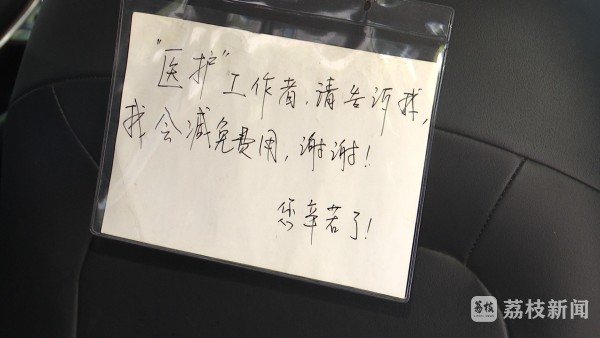 "医护"工作者,请告诉我,
我会减免费用,谢谢!
您辛苦了!
荔枝 荔枝新闻